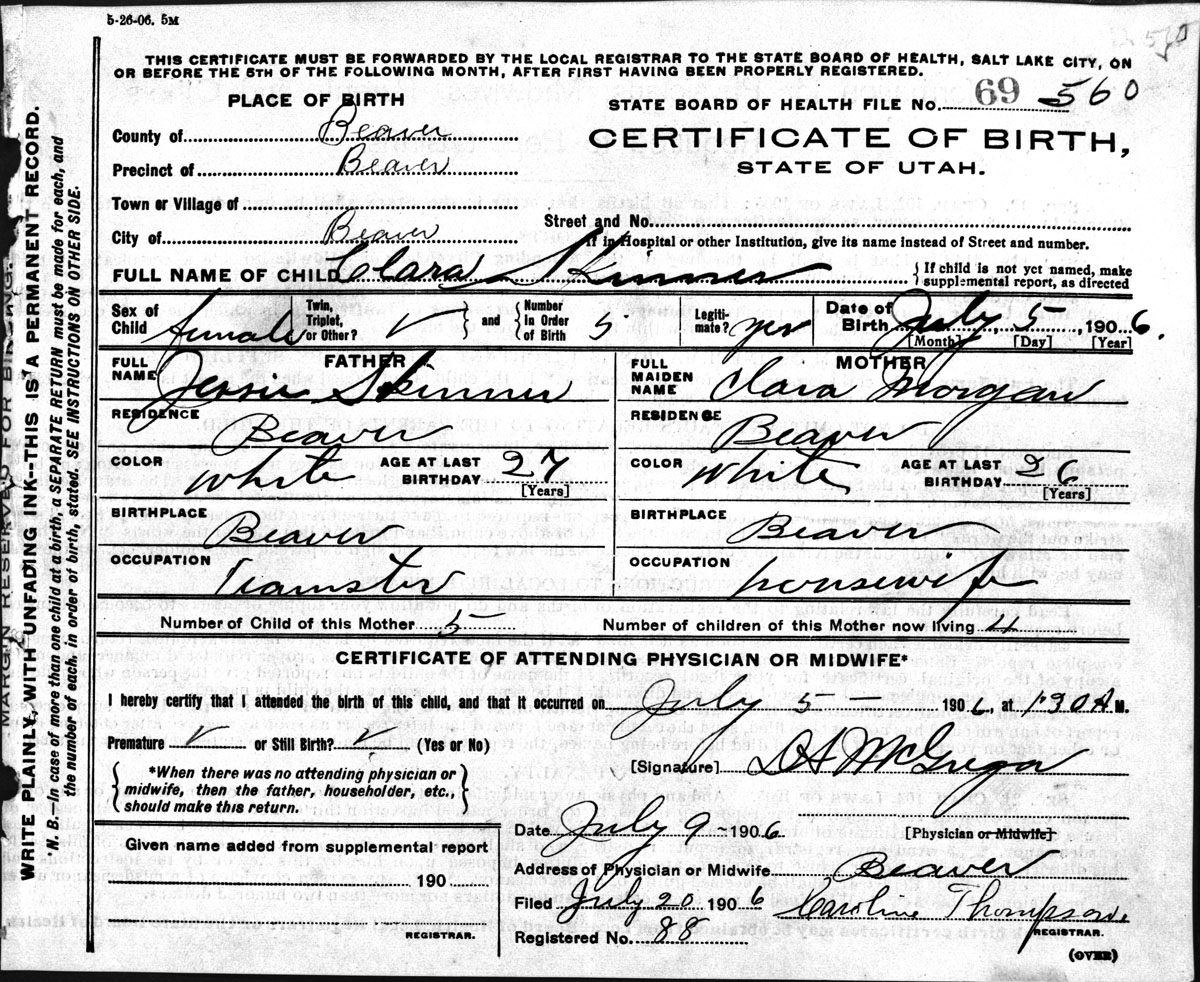 5-26-06. 5M
THIS CERTIFICATE MUST BE FORWARDED BY THE LOCAL REGISTRAR TO THE STATE BOARD OF HEALTH, SALT LAKE CITY, ON
OR BEFORE THE 5TH OF THE FOLLOWING MONTH, AFTER FIRST HAVING BEEN PROPERLY REGISTERED.
MARGIN RESERVED FOR BINDING.
WRITE PLAINLY, WITH UNFADING INK--THIS IS A PERMANENT RECORD.
N. B.—In case of more than one child at a birth, a SEPARATE RETURN must be made for each, and
the number of each, in order of birth, stated. SEE INSTRUCTIONS ON OTHER SIDE.
PLACE OF BIRTH
STATE BOARD OF HEALTH FILE No. 69 560
County of Beaver
CERTIFICATE OF BIRTH,
Precinct of Beaver
STATE OF UTAH.
Town or Village of
Street and No.
City of Beaver
If in Hospital or other Institution, give its name instead of Street and number.
FULL NAME OF CHILD Clara Skinner
{ If child is not yet named, make
supplemental report, as directed
Sex of Child female
Twin, Triplet, or Other? ✓ } and { Number in Order of Birth 5
Legitimate? yes
Date of Birth July 5, 1906.
[Month] [Day] [Year]
FATHER
FULL NAME Jessie Skinner
MOTHER
FULL MAIDEN NAME Clara Morgan
RESIDENCE Beaver
RESIDENCE Beaver
COLOR White AGE AT LAST BIRTHDAY 27 [Years]
COLOR White AGE AT LAST BIRTHDAY 26 [Years]
BIRTHPLACE Beaver
BIRTHPLACE Beaver
OCCUPATION Teamster
OCCUPATION housewife
Number of Child of this Mother 5
Number of children of this Mother now living 4
CERTIFICATE OF ATTENDING PHYSICIAN OR MIDWIFE*
I hereby certify that I attended the birth of this child, and that it occurred on July 5 — 1906, at 1:30 A M.
Premature ✓ or Still Birth? ✓ (Yes or No)
[Signature] D A McGregor
{ *When there was no attending physician or
midwife, then the father, householder, etc.,
should make this return. }
Date July 9 – 1906
[Physician or Midwife]
Given name added from supplemental report
190
REGISTRAR.
Address of Physician or Midwife Beaver
Filed July 20 1906 Caroline Thompson
REGISTRAR.
Registered No. 88
(OVER)